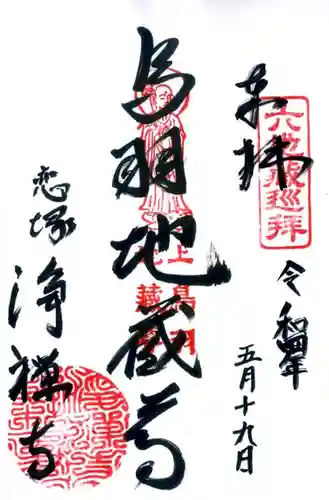 奉拝
六地蔵巡拝
令和四年
五月十九日
鳥羽地蔵尊
上鳥羽
地蔵
恋塚
浄禅寺